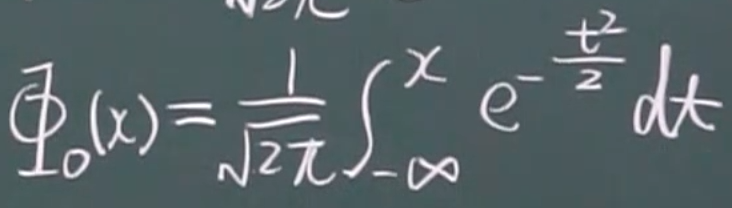 Φ₀(x) = 1/√2π ∫_{-∞}^{x} e^{-t²/2} dt